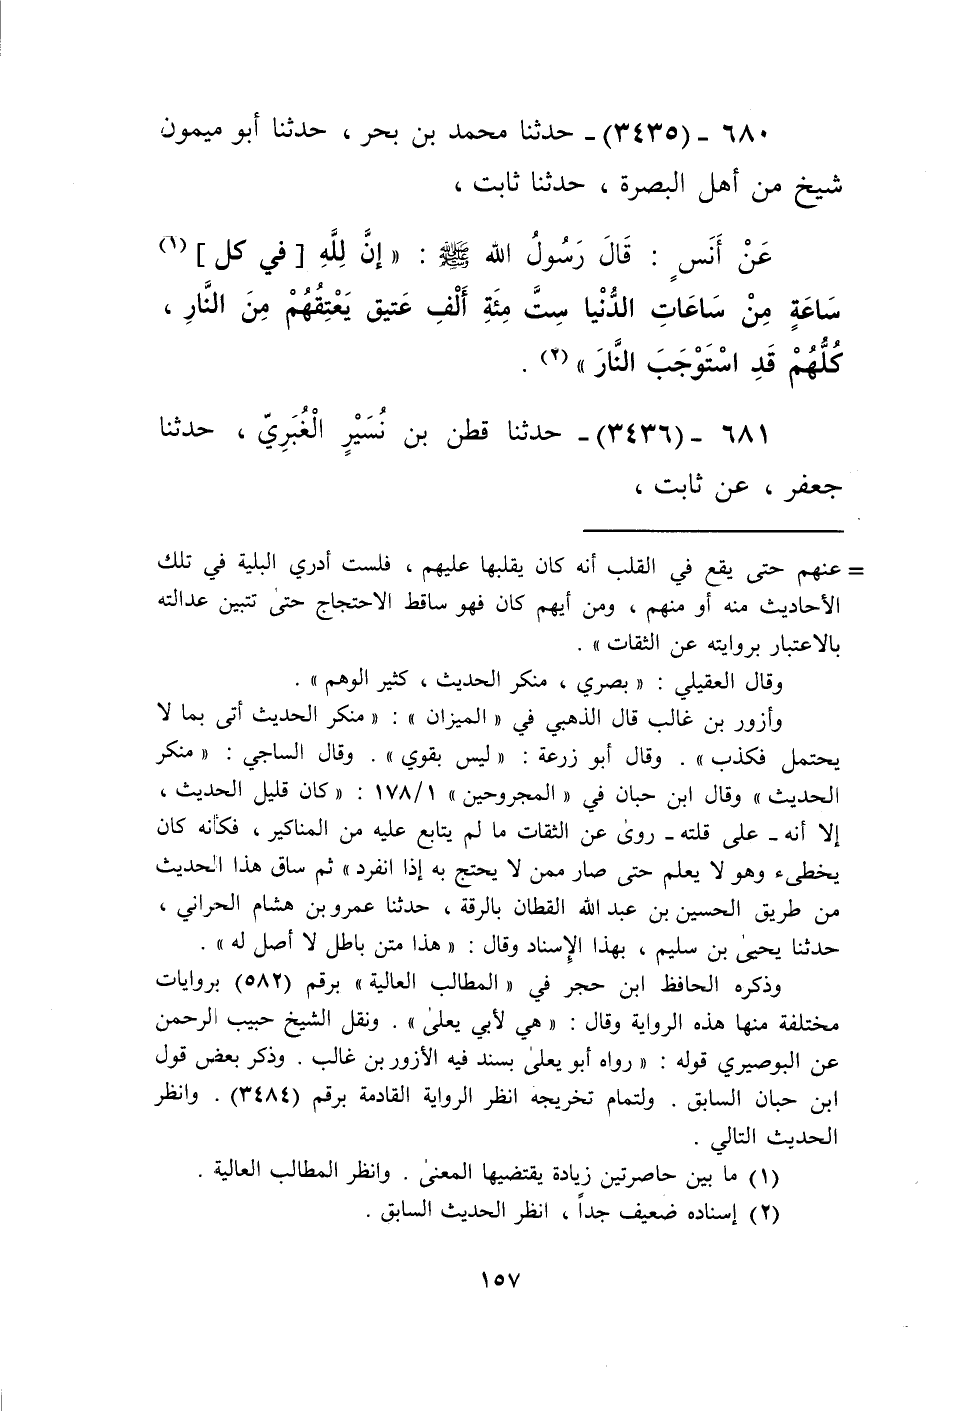 ٦٨٠ ـ (٣٤٣٥) ـ حدثنا محمد بن بحر ، حدثنا أبو ميمون
شيخ من أهل البصرة ، حدثنا ثابت ،
عَنْ أَنَسٍ : قَالَ رَسُولُ الله ﷺ : « إنَّ لِلَّهِ [ في كل ] (١)
سَاعَةٍ مِنْ سَاعَاتِ الدُّنْيا سِتَّ مِئَةِ أَلْفِ عَتيق يَعْتِقُهُمْ مِنَ النَّارِ ،
كُلُّهُمْ قَدِ اسْتَوْجَبَ النَّارَ » (٢) .
٦٨١ ـ (٣٤٣٦) ـ حدثنا قطن بن نُسَيْرٍ الْغُبَرِيّ ، حدثنا
جعفر ، عن ثابت ،
= عنهم حتى يقع في القلب أنه كان يقلبها عليهم ، فلست أدري البلية في تلك
الأحاديث منه أو منهم ، ومن أيهم كان فهو ساقط الاحتجاج حتىٰ تتبين عدالته
بالاعتبار بروايته عن الثقات » .
وقال العقيلي : « بصري ، منكر الحديث ، كثير الوهم » .
وأزور بن غالب قال الذهبي في « الميزان » : « منكر الحديث أتى بما لا
يحتمل فكذب » . وقال أبو زرعة : « ليس بقوي » . وقال الساجي : « منكر
الحديث » وقال ابن حبان في « المجروحين » ١٧٨/١ : « كان قليل الحديث ،
إلا أنه ـ على قلته ـ روىٰ عن الثقات ما لم يتابع عليه من المناكير ، فكأنه كان
يخطىء وهو لا يعلم حتى صار ممن لا يحتج به إذا انفرد » ثم ساق هذا الحديث
من طريق الحسين بن عبد الله القطان بالرقة ، حدثنا عمرو بن هشام الحراني ،
حدثنا يحيىٰ بن سليم ، بهذا الإسناد وقال : « هذا متن باطل لا أصل له » .
وذكره الحافظ ابن حجر في « المطالب العالية » برقم (٥٨٢) بروايات
مختلفة منها هذه الرواية وقال : « هي لأبي يعلىٰ » . ونقل الشيخ حبيب الرحمن
عن البوصيري قوله : « رواه أبو يعلىٰ بسند فيه الأزور بن غالب . وذكر بعض قول
ابن حبان السابق . ولتمام تخريجه انظر الرواية القادمة برقم (٣٤٨٤) . وانظر
الحديث التالي .
(١) ما بين حاصرتين زيادة يقتضيها المعنىٰ . وانظر المطالب العالية .
(٢) إسناده ضعيف جداً ، انظر الحديث السابق .
١٥٧